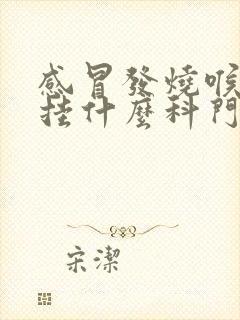 感冒發燒喉
挂什麼科門
宋潔